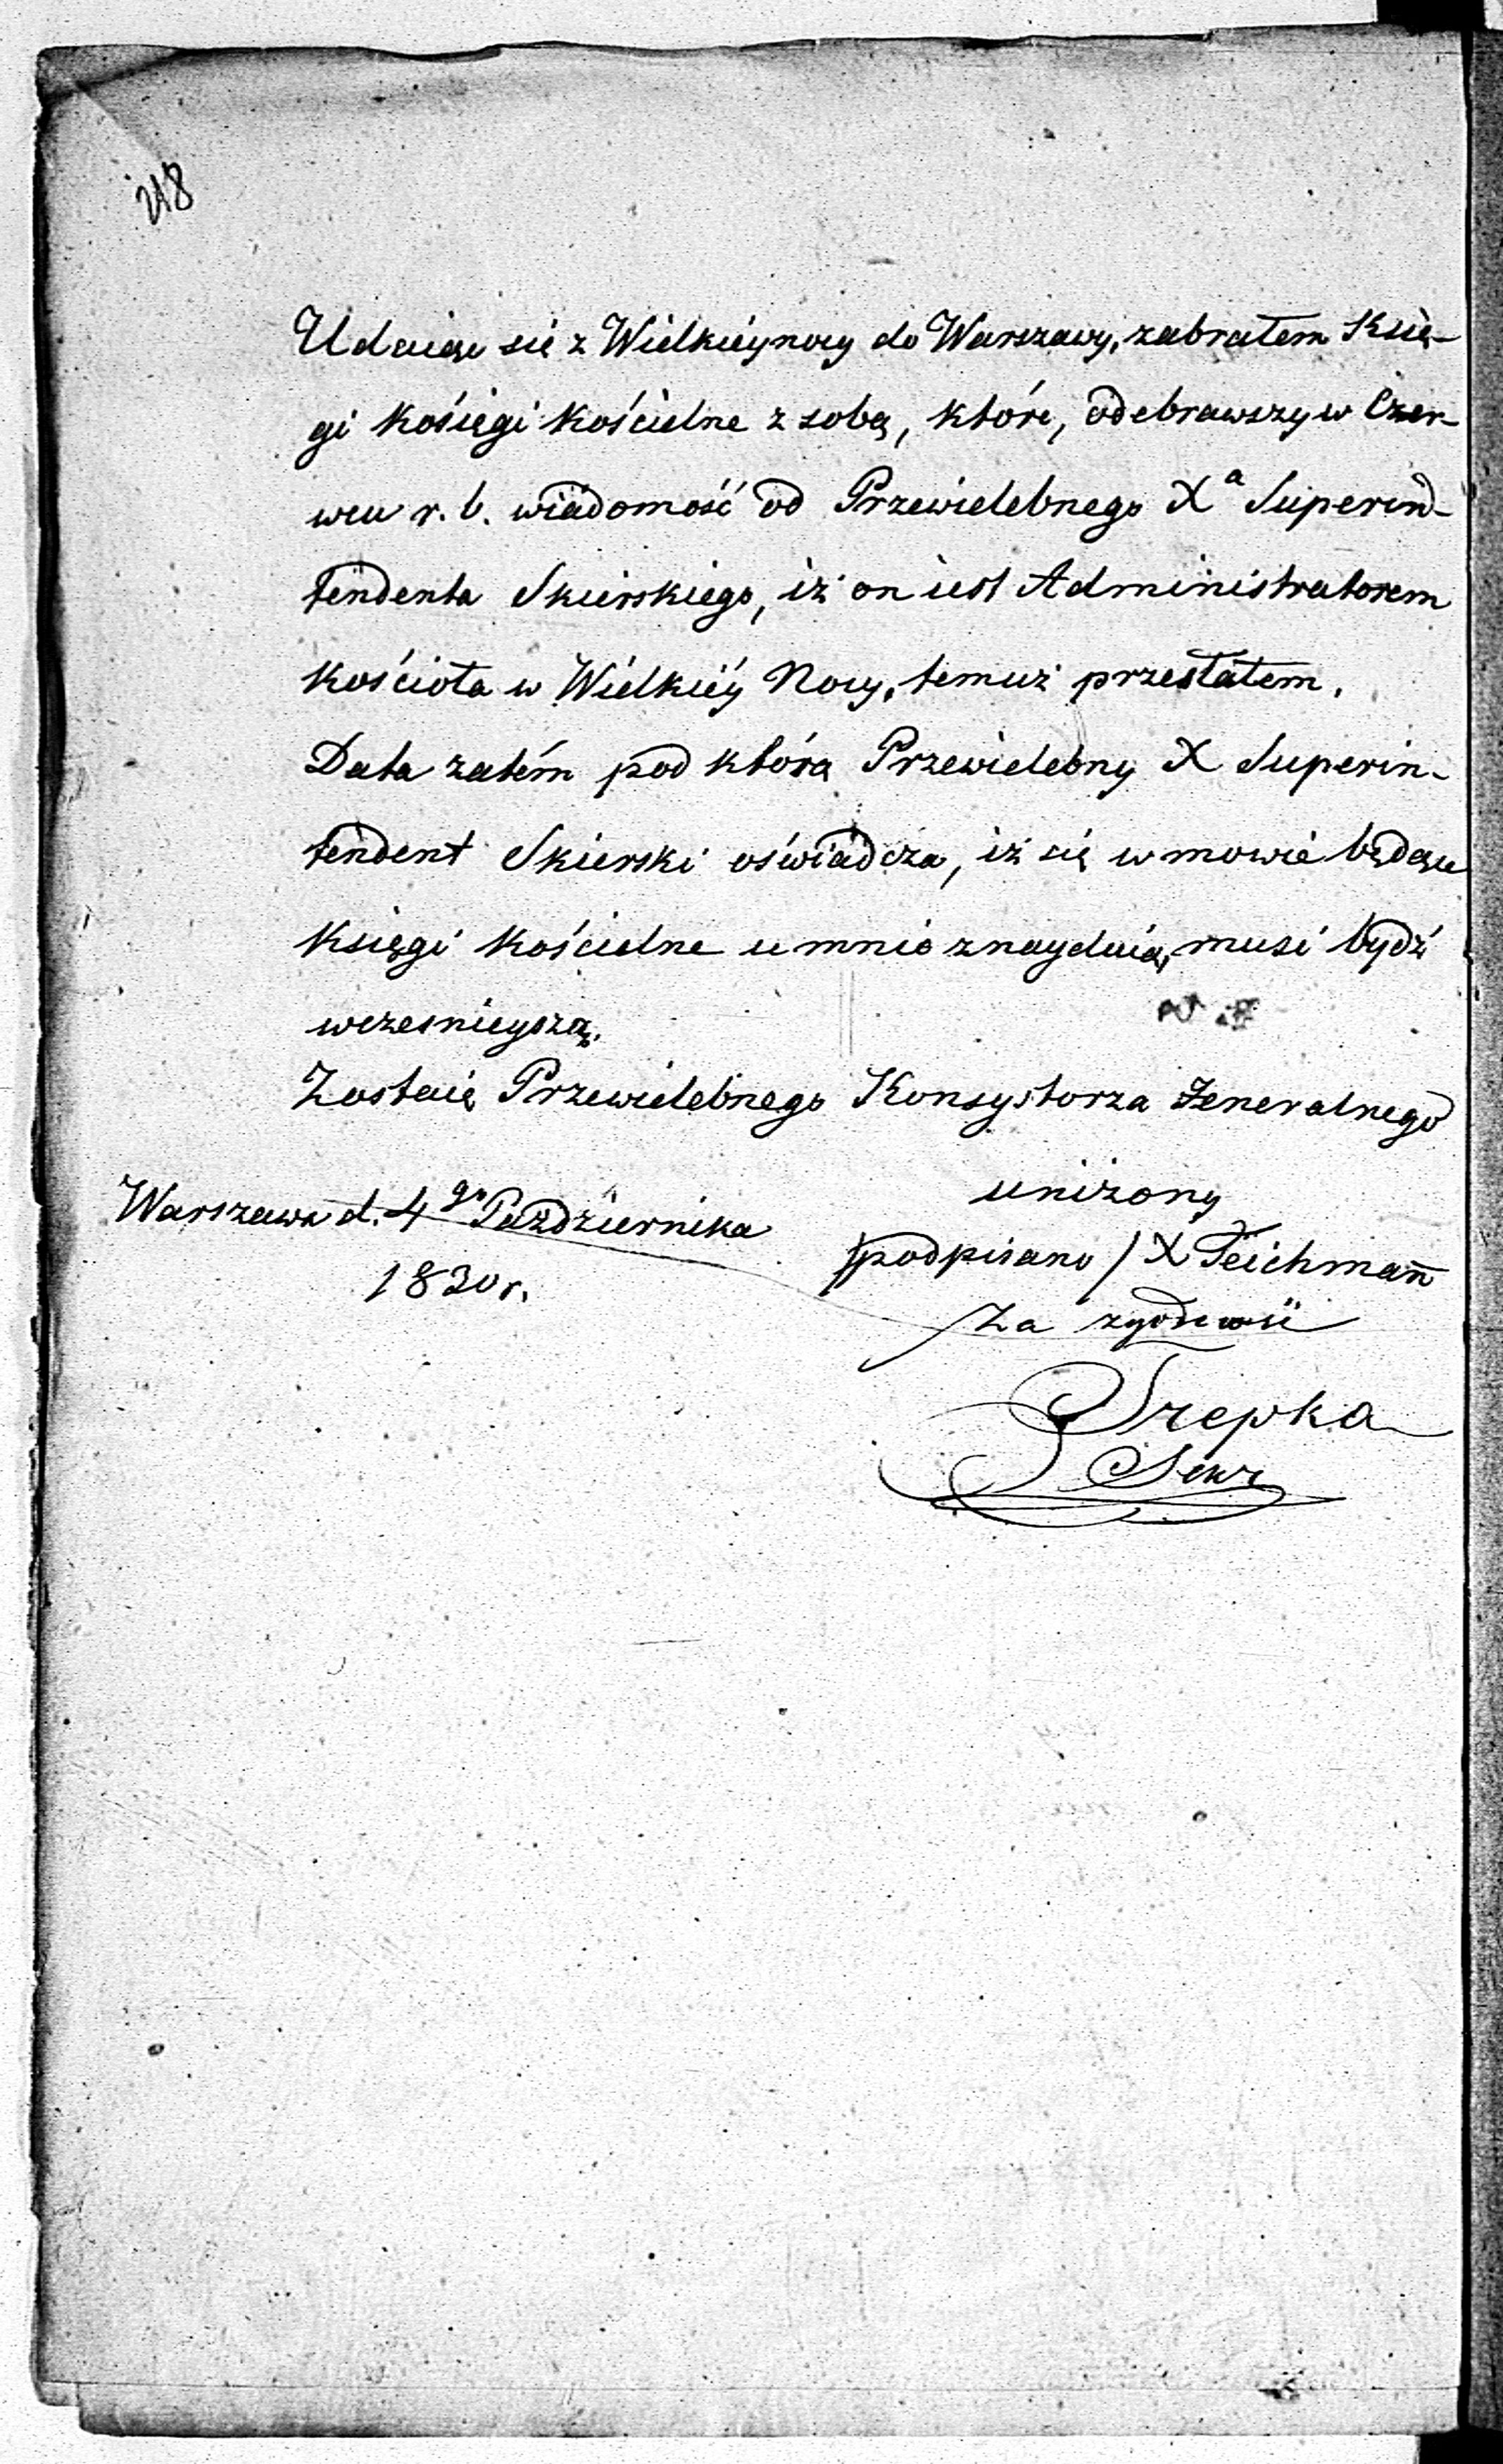 218
Udaiąc się z Wielkieynocy do Warszawy, zabrałem Księ-
gi Kosięgi Kościelne z sobą, które, odebrawszy w Czer-
wcu r. b. wiadomość od Przewielebnego Xa Superind-
tendenta Skierskiego, iż on iest Administratorem
kościoła w Wielkiéy Nocy, temuż przesłałem.
Data zatém pod którą Przewielebny X Superin-
tendent Skierski oświadcza, iż się w mowie będące
Księgi Kościelne u mnie znayduią, musi bydź
wczesnieyszą.
Zostaię Przewielebnego Konsystorza Jeneralnego
uniżony
Warszawa d. 4go Października
1830 r.
/podpisano/ X Teichmañ
Za zgodność
Trepka
Sekr